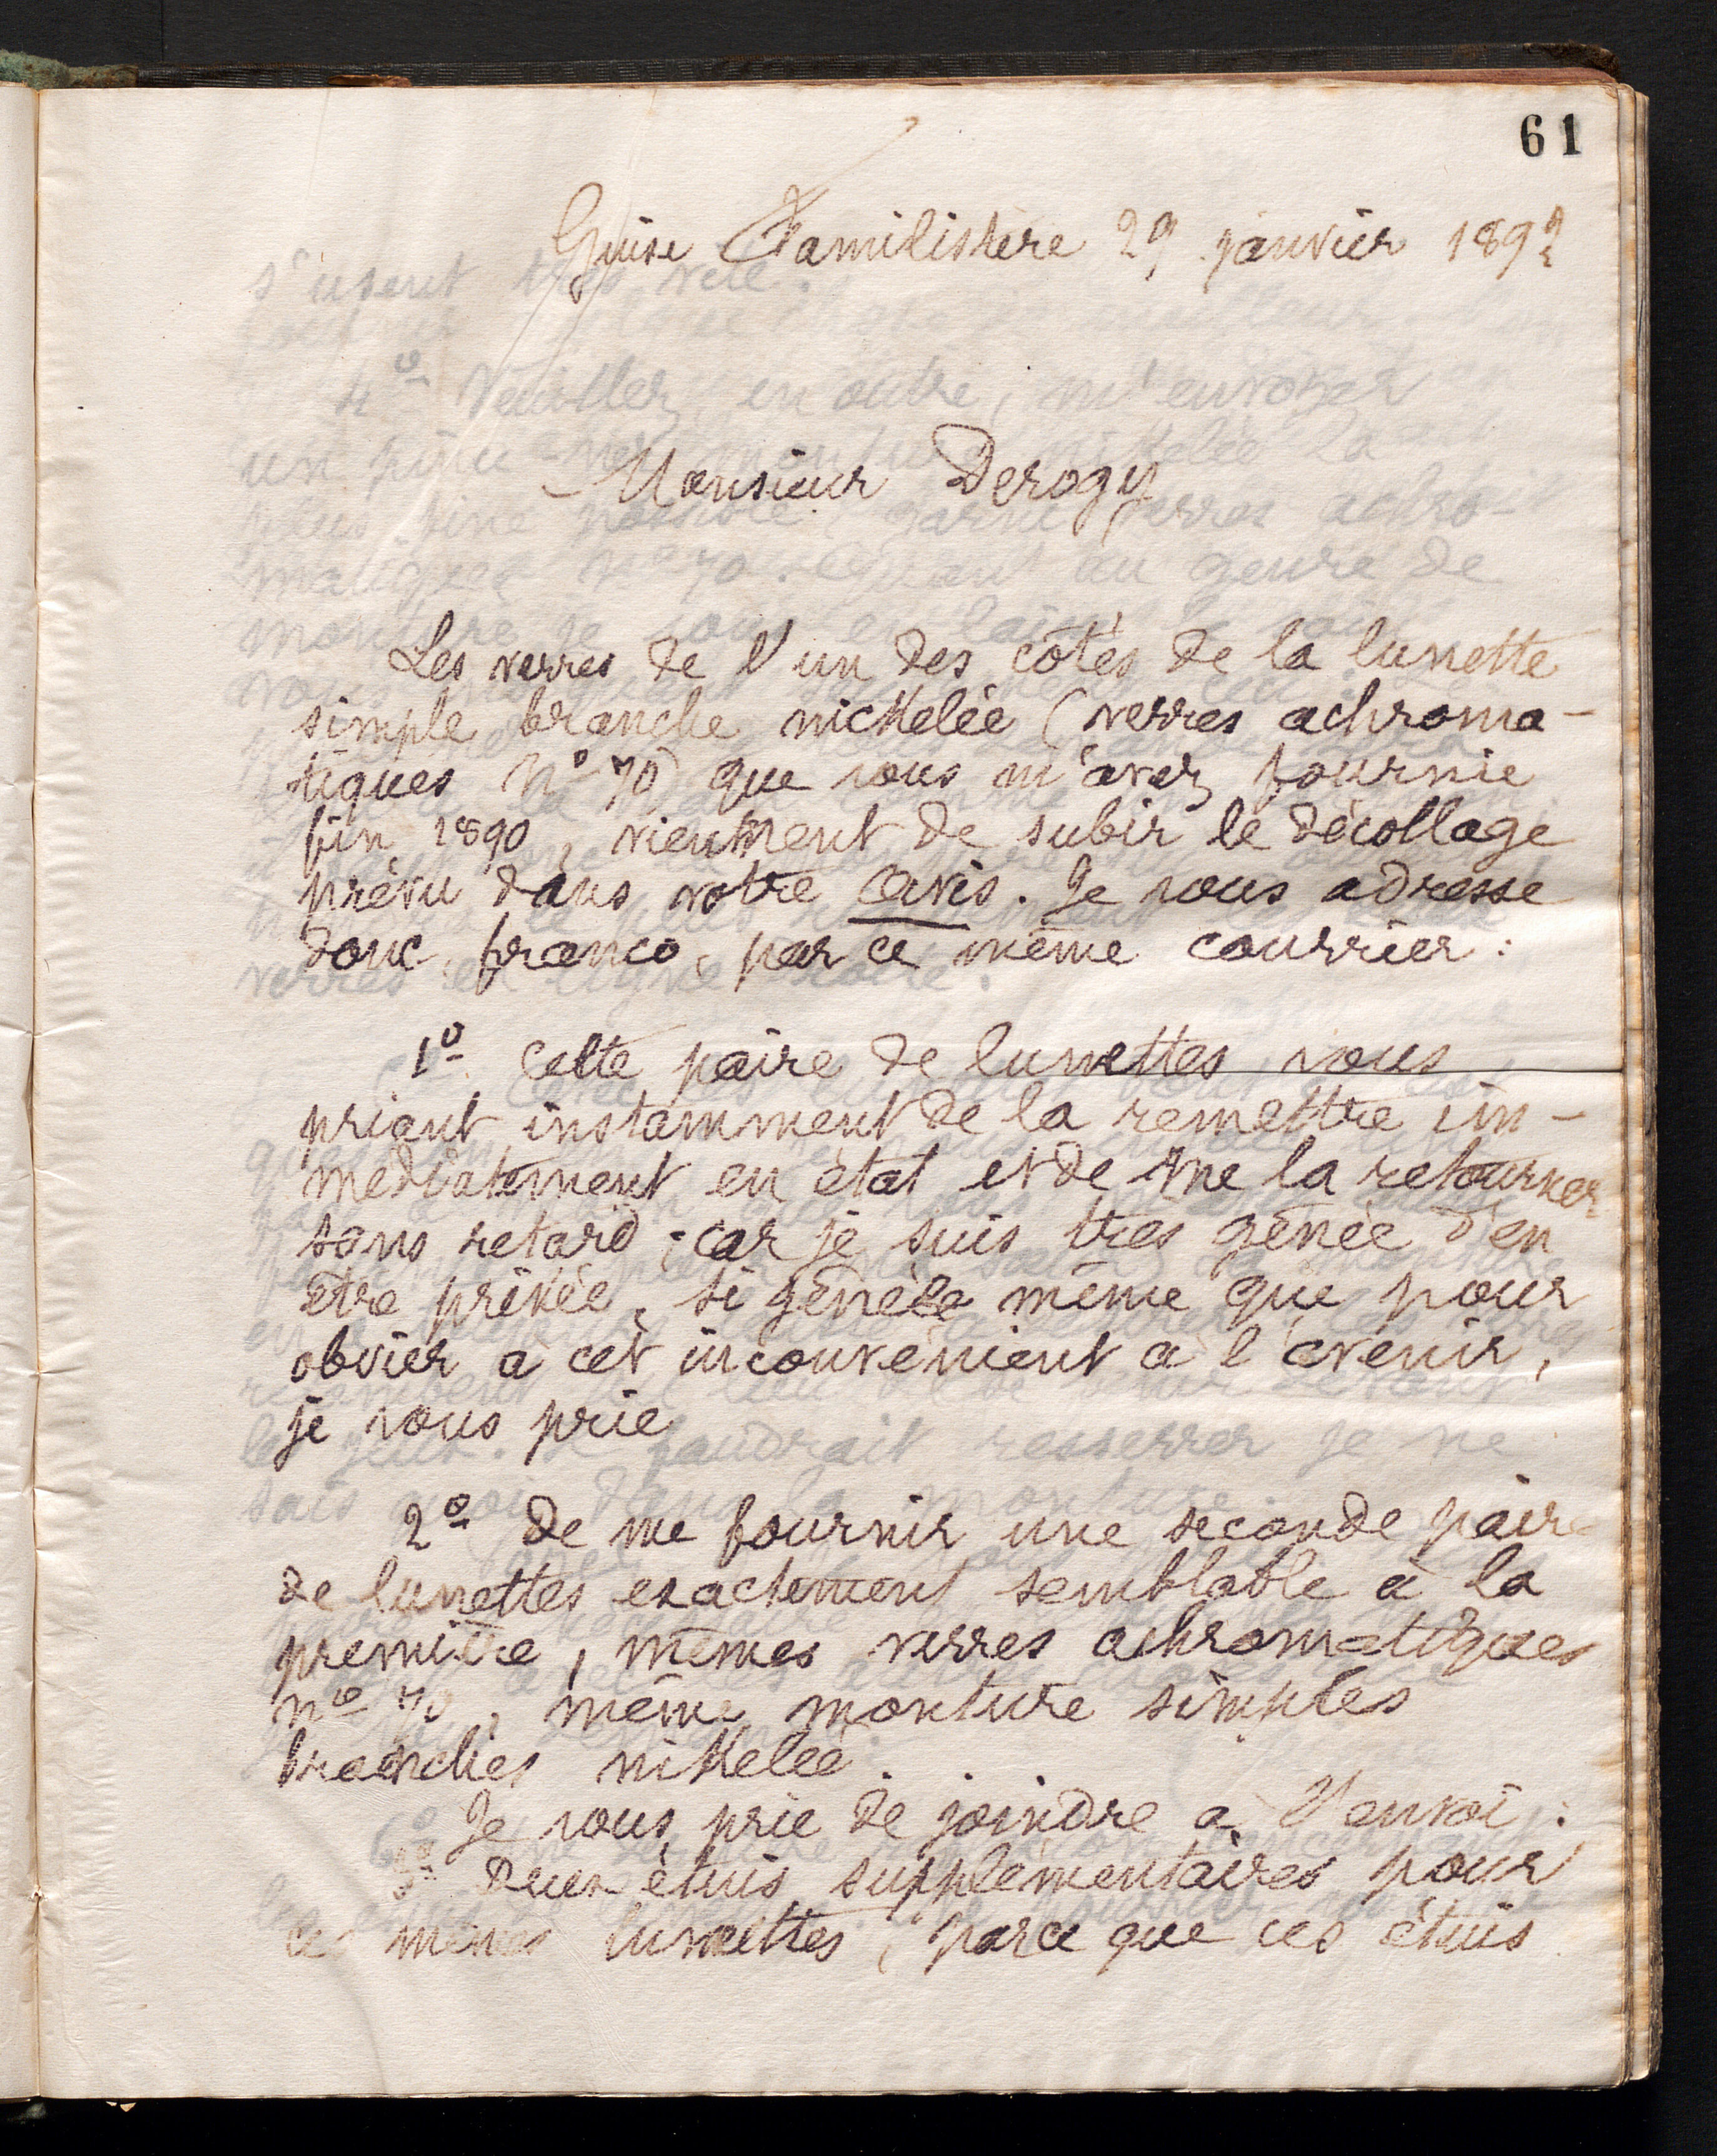 61
Guise Familistère 29 janvier 1892
Monsieur Derogy
Les verres de l'un des côtés de la lunette
simple branche nickelée (verres achroma-
tiques N° 70) que vous m'avez fournie
fin 1890, viennent de subir le décollage
prévu dans votre avis. Je vous adresse
donc, franco, par ce même courrier :
1° Cette paire de lunettes vous
priant instamment de la remettre im-
médiatement en état et de me la retourner
sans retard ; car je suis très gênée d'en
être privée, si gênée même que pour
obvier à cet inconvénient à l'avenir,
je vous prie
2° de me fournir une seconde paire
de lunettes exactement semblable à la
première, mêmes verres achromatiques
n° 70, même monture simples
branches nikelée.
Je vous prie de joindre à l'envoi :
3° Deux étuis supplémentaires pour
ces mêmes lunettes, parce que ces étuis